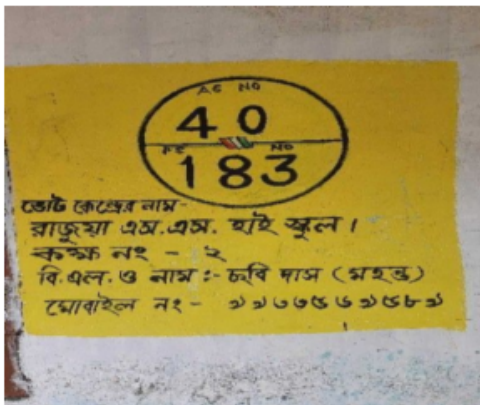 AC NO
40
PS NO
183
ভোট কেন্দ্রের নাম-
রাজুয়া এস.এস. হাই স্কুল।
কক্ষ নং - ২
বি.এল.ও নাম :- ছবি দাস (মহন্ত)
মোবাইল নং -